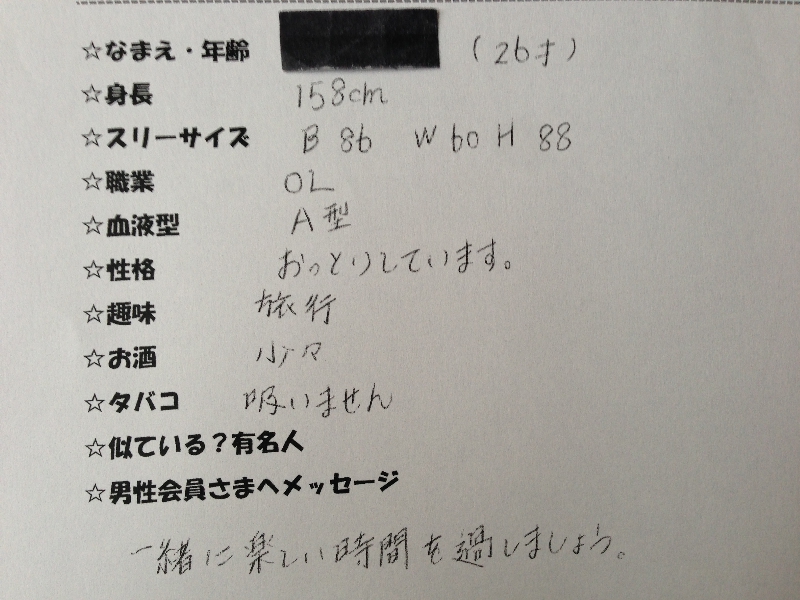 ☆なまえ・年齢 (26才)
☆身長 158cm
☆スリーサイズ B 86 W 60 H 88
☆職業 OL
☆血液型 A型
☆性格 おっとりしています。
☆趣味 旅行
☆お酒 少々
☆タバコ 吸いません
☆似ている?有名人
☆男性会員さまへメッセージ
一緒に楽しい時間を過しましょう。